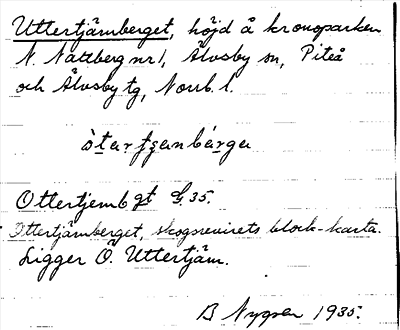 Uttertjärnberget, höjd å kronoparken
N. Nattberg nr 1, Älvsby sn, Piteå
och Älvsby tg, Norrb. l.
Ottertjernbgt G. 35.
Ottertjärnberget, skogsrevirets block-karta.
Ligger Ö. Uttertjärn.
B Nygren 1935.